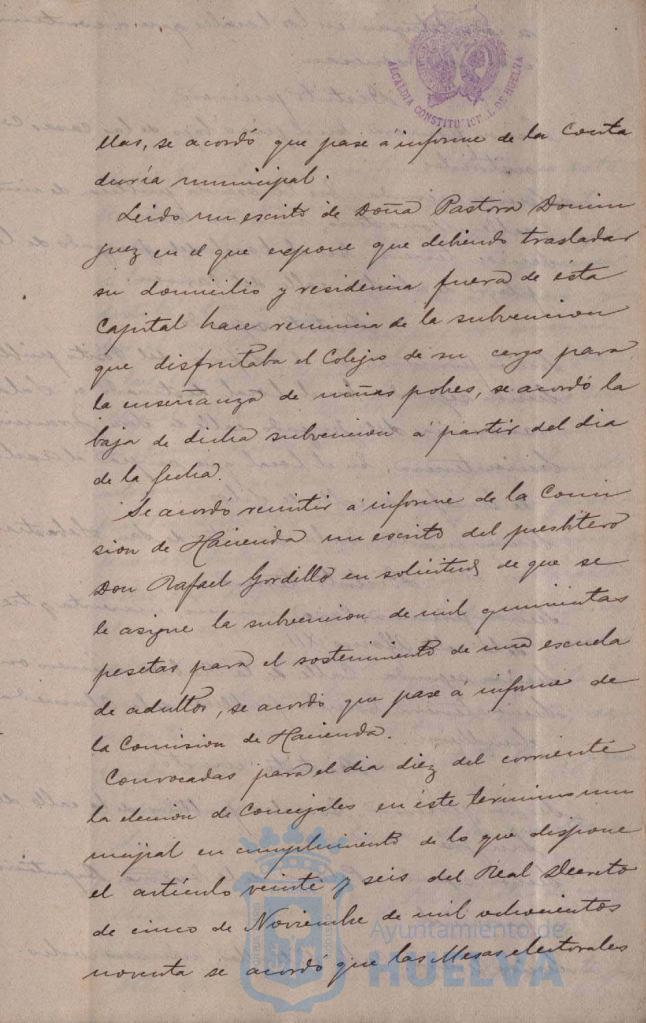 ALCALDIA CONSTITUCIONAL DE HUELVA
llas, se acordó que pase á informe de la Conta
duría municipal.
Leido un escrito de Doña Pastora Domin
guez en el que expone que debiendo trasladar
su domicilio y residencia fuera de ésta
Capital hace renuncia de la subvencion
que disfrutaba el Colegio de su cargo para
la enseñanza de niñas pobres, se acordó la
baja de dicha subvencion á partir del dia
de la fecha.
Se acordó remitir á informe de la Comi
sion de Hacienda un escrito del presbitero
Don Rafael Gordillo en solicitud de que se
le asigne la subvencion de mil quinientas
pesetas para el sostenimiento de una escuela
de adultos, se acordó que pase á informe de
la Comision de Hacienda.
Convocadas para el dia diez del corriente
la eleccion de Concejales en éste término mu
nicipal en cumplimiento de lo que dispone
el artículo veinte y seis del Real Decreto
de cinco de Noviembre de mil ochocientos
noventa se acordó que las Mesas electorales
Ayuntamiento de
HUELVA